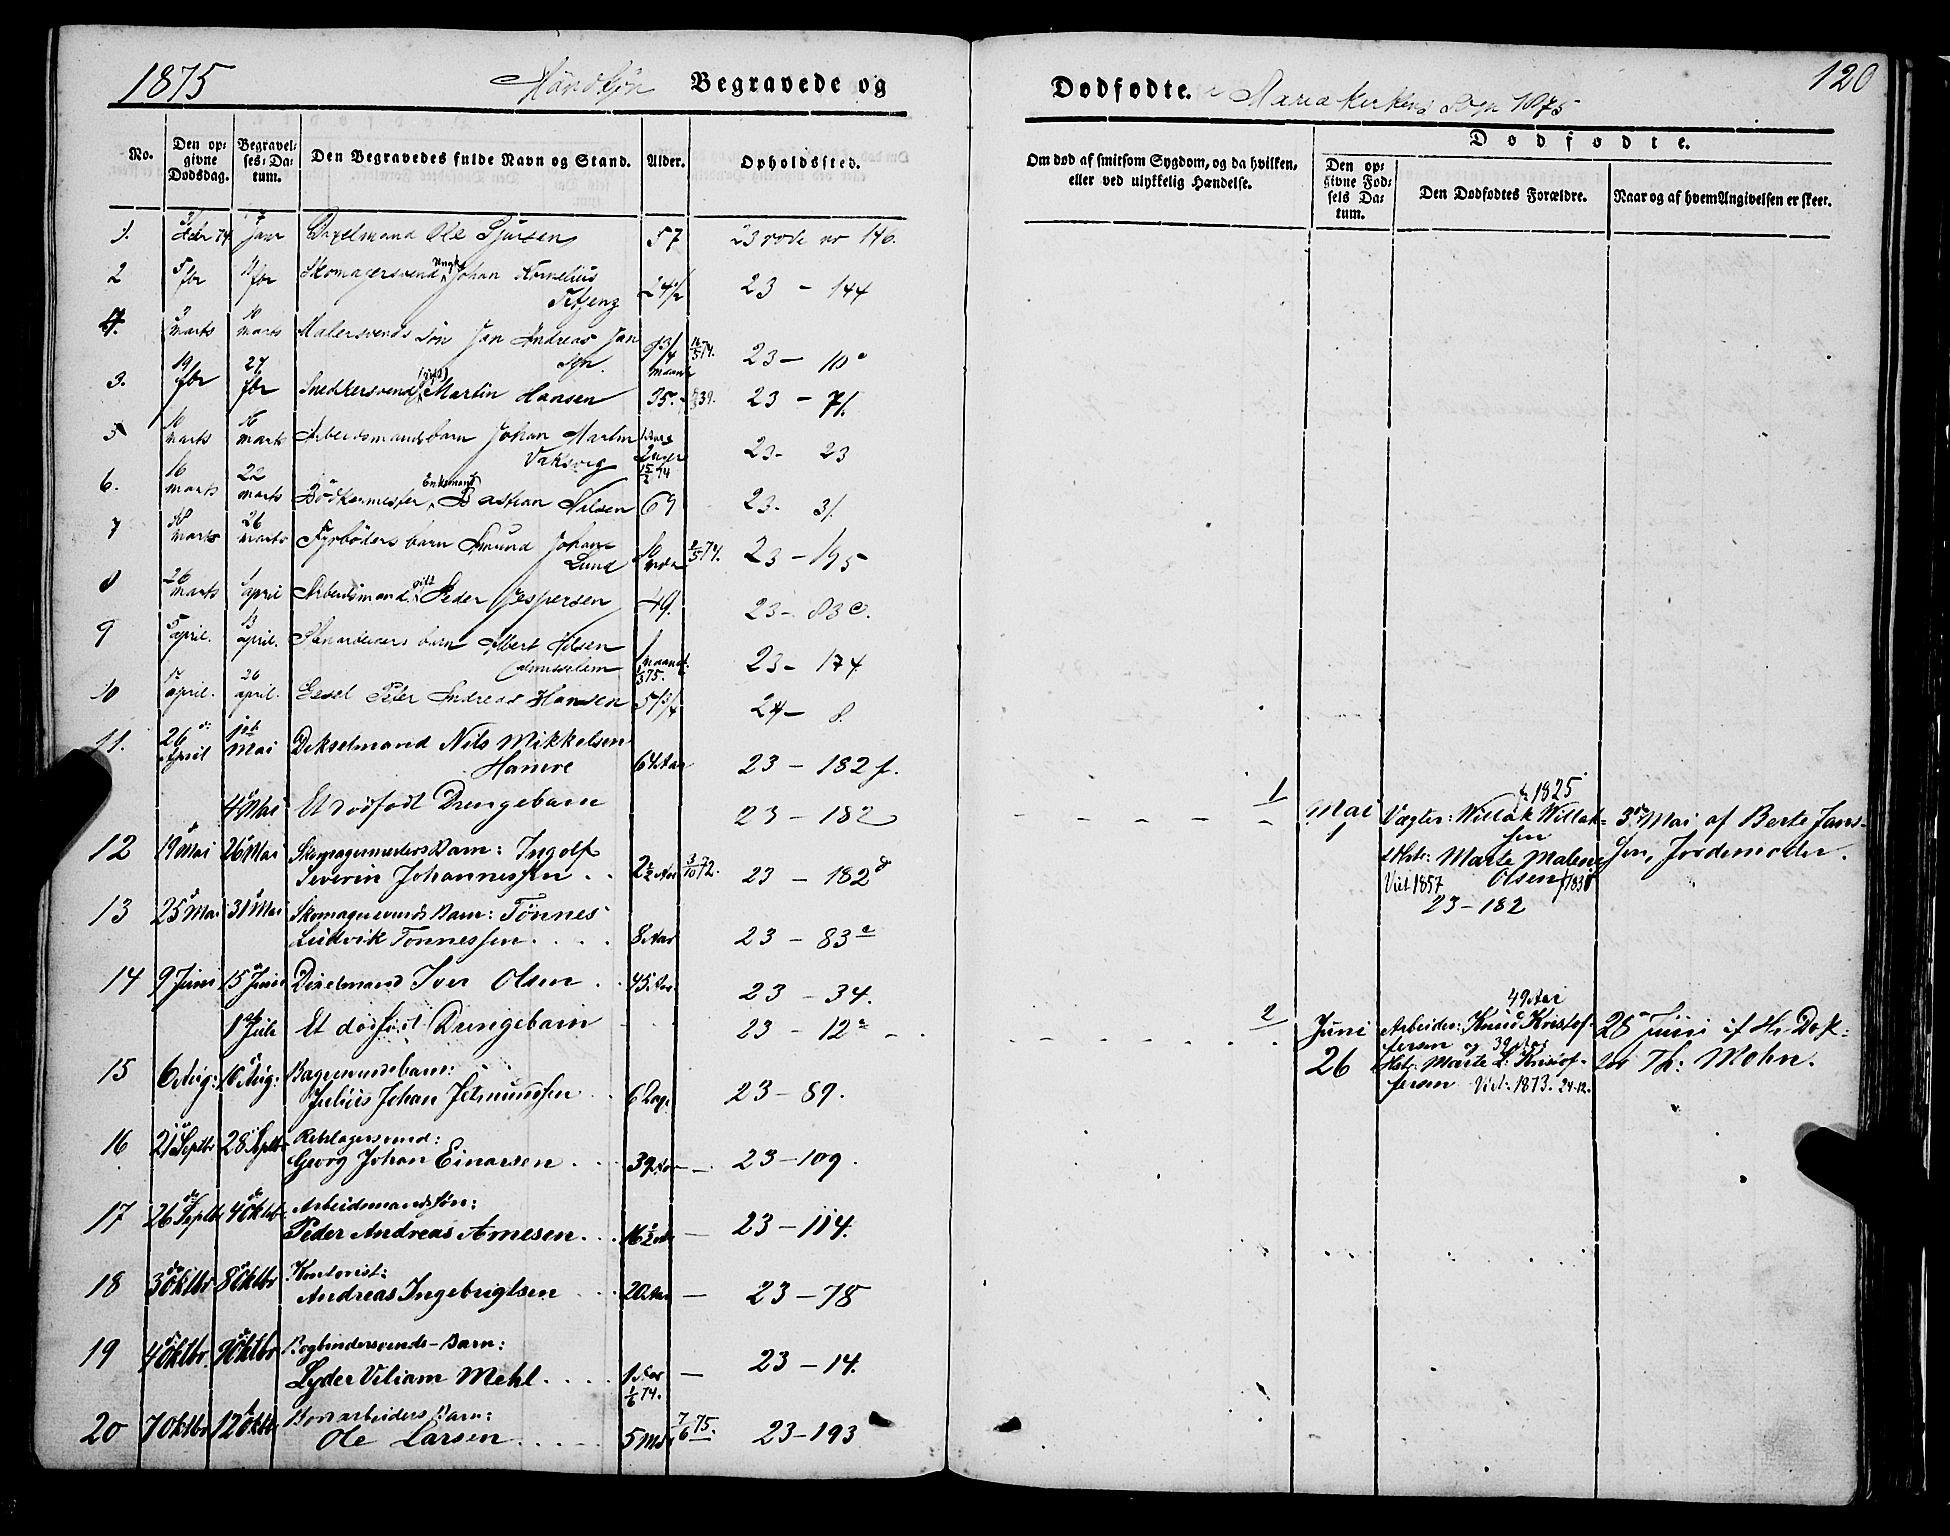 1875 Mandkjøn Begravede og
No.
Den op-
givne
Dødsdag.
Begravel-
ses-Da-
tum.
Den Begravedes fulde Navn og Stand.
Alder.
Opholdssted.
1. Febr 74 Janr Ole 57 23 rode nr 146.
2 5 fbr 11 fbr Skomagersvend Ungk. Johan Kornelius
24½ 23 - 144
4. marts marts Malersvends Søn Jan Andreas Jan
sen 9¾ maaned 23 - 10
3. 19 fbr 27 fbr Snedkersvend (gift) Martin Hansen 35. 23 - 71.
5 10 marts 16 marts Arbeidsmandsbarn Johan Martin
Vaksvig 15/2 74 23 - 23
6. 16 marts 22 marts Bødkermester Enkemand Bastian Nilsen 69 23 - 31.
7 marts 26 marts Fyrbøders barn Amund Johan
Lund 10 23 - 195
8 26 marts 1 april Arbeidsmand gift Peder Jespersen 49. 23 - 83 c.
9 5 april. 13 april. barn Albert Nilsen
1 maaned 23 - 174
10 april. 26 april. Gesel Peter Andreas Hansen 57¾ 24 - 8.
11. 26 April 1ste Mai Dekselmand Nils Mikkelsen
Hamre 64 Aar 23 - 182 f.
4 Mai Et dødfødt Drengebarn 23 - 182
12 19 Mai 26 Mai Skomagermesters Barn: Ingolf
Severin Johannessen . . 2½ Aar 3/10 72. 23 - 182 d
13 25 Mai 31 Mai Skomagersvends Barn: Tønnes
Ludvik Tønnessen . . . . 8 Aar 23 - 83 c
14 9 Juni 15 Juni Dixelmand Iver Olsen . . 45 Aar 23 - 34.
1 Juli Et dødfødt Drengebarn 23 - 12 a
15 6 Aug: 10 Aug: Bagersvendsbarn:
Julius Johan . . 6 Dag. 23 - 89.
16 21 Septbr 28 Septbr Rebslagersvend:
Georg Johan Einarsen . . . 39 Aar 23 - 109.
17 26 Septbr 4 Oktbr Arbeidsmands Søn:
Peder Andreas Arnesen . . . 16½ 23 - 114.
18 3 Oktbr 8 Oktbr Kontorist:
Andreas Ingebrigtsen . . . 20 Aar 23 - 78
19 4 Oktbr. 9 Oktbr Bogbindersvends-Barn:
Lyder Viliam Mehl . . . . 1 Aar 1/6 74. 23 - 14.
20 7 Oktbr 12 Oktbr Barn:
Ole Larsen . . . . . 5 Md. 7/6 75. 23 - 193
Dødfødte. Mariakirkens Sogn 1875 120
Om død af smitsom Sygdom, og da hvilken,
eller ved ulykkelig Hændelse.
Dødfødte.
Den op-
givne Fød-
sels Da-
tum.
Den Dødfødtes Forældre.
Naar og af hvem Angivelsen er skeet.
1 Mai 1 f. 1825
Vægter: Willak Willak-
sen
Hstr: Marte Malene
Olsen
Viet 1857
23 - 182
3 Mai af Berte Jans-
sen, Jordemoder.
2 Juni 26 49 Aar
Arbeider: Knud Kristof-
fersen og 39 Aar
Hstr: Marte L. Kristof-
fersen Viet: 1873. 24-12.
28 Juni af Hr. Dok-
tor Th: Mohn.